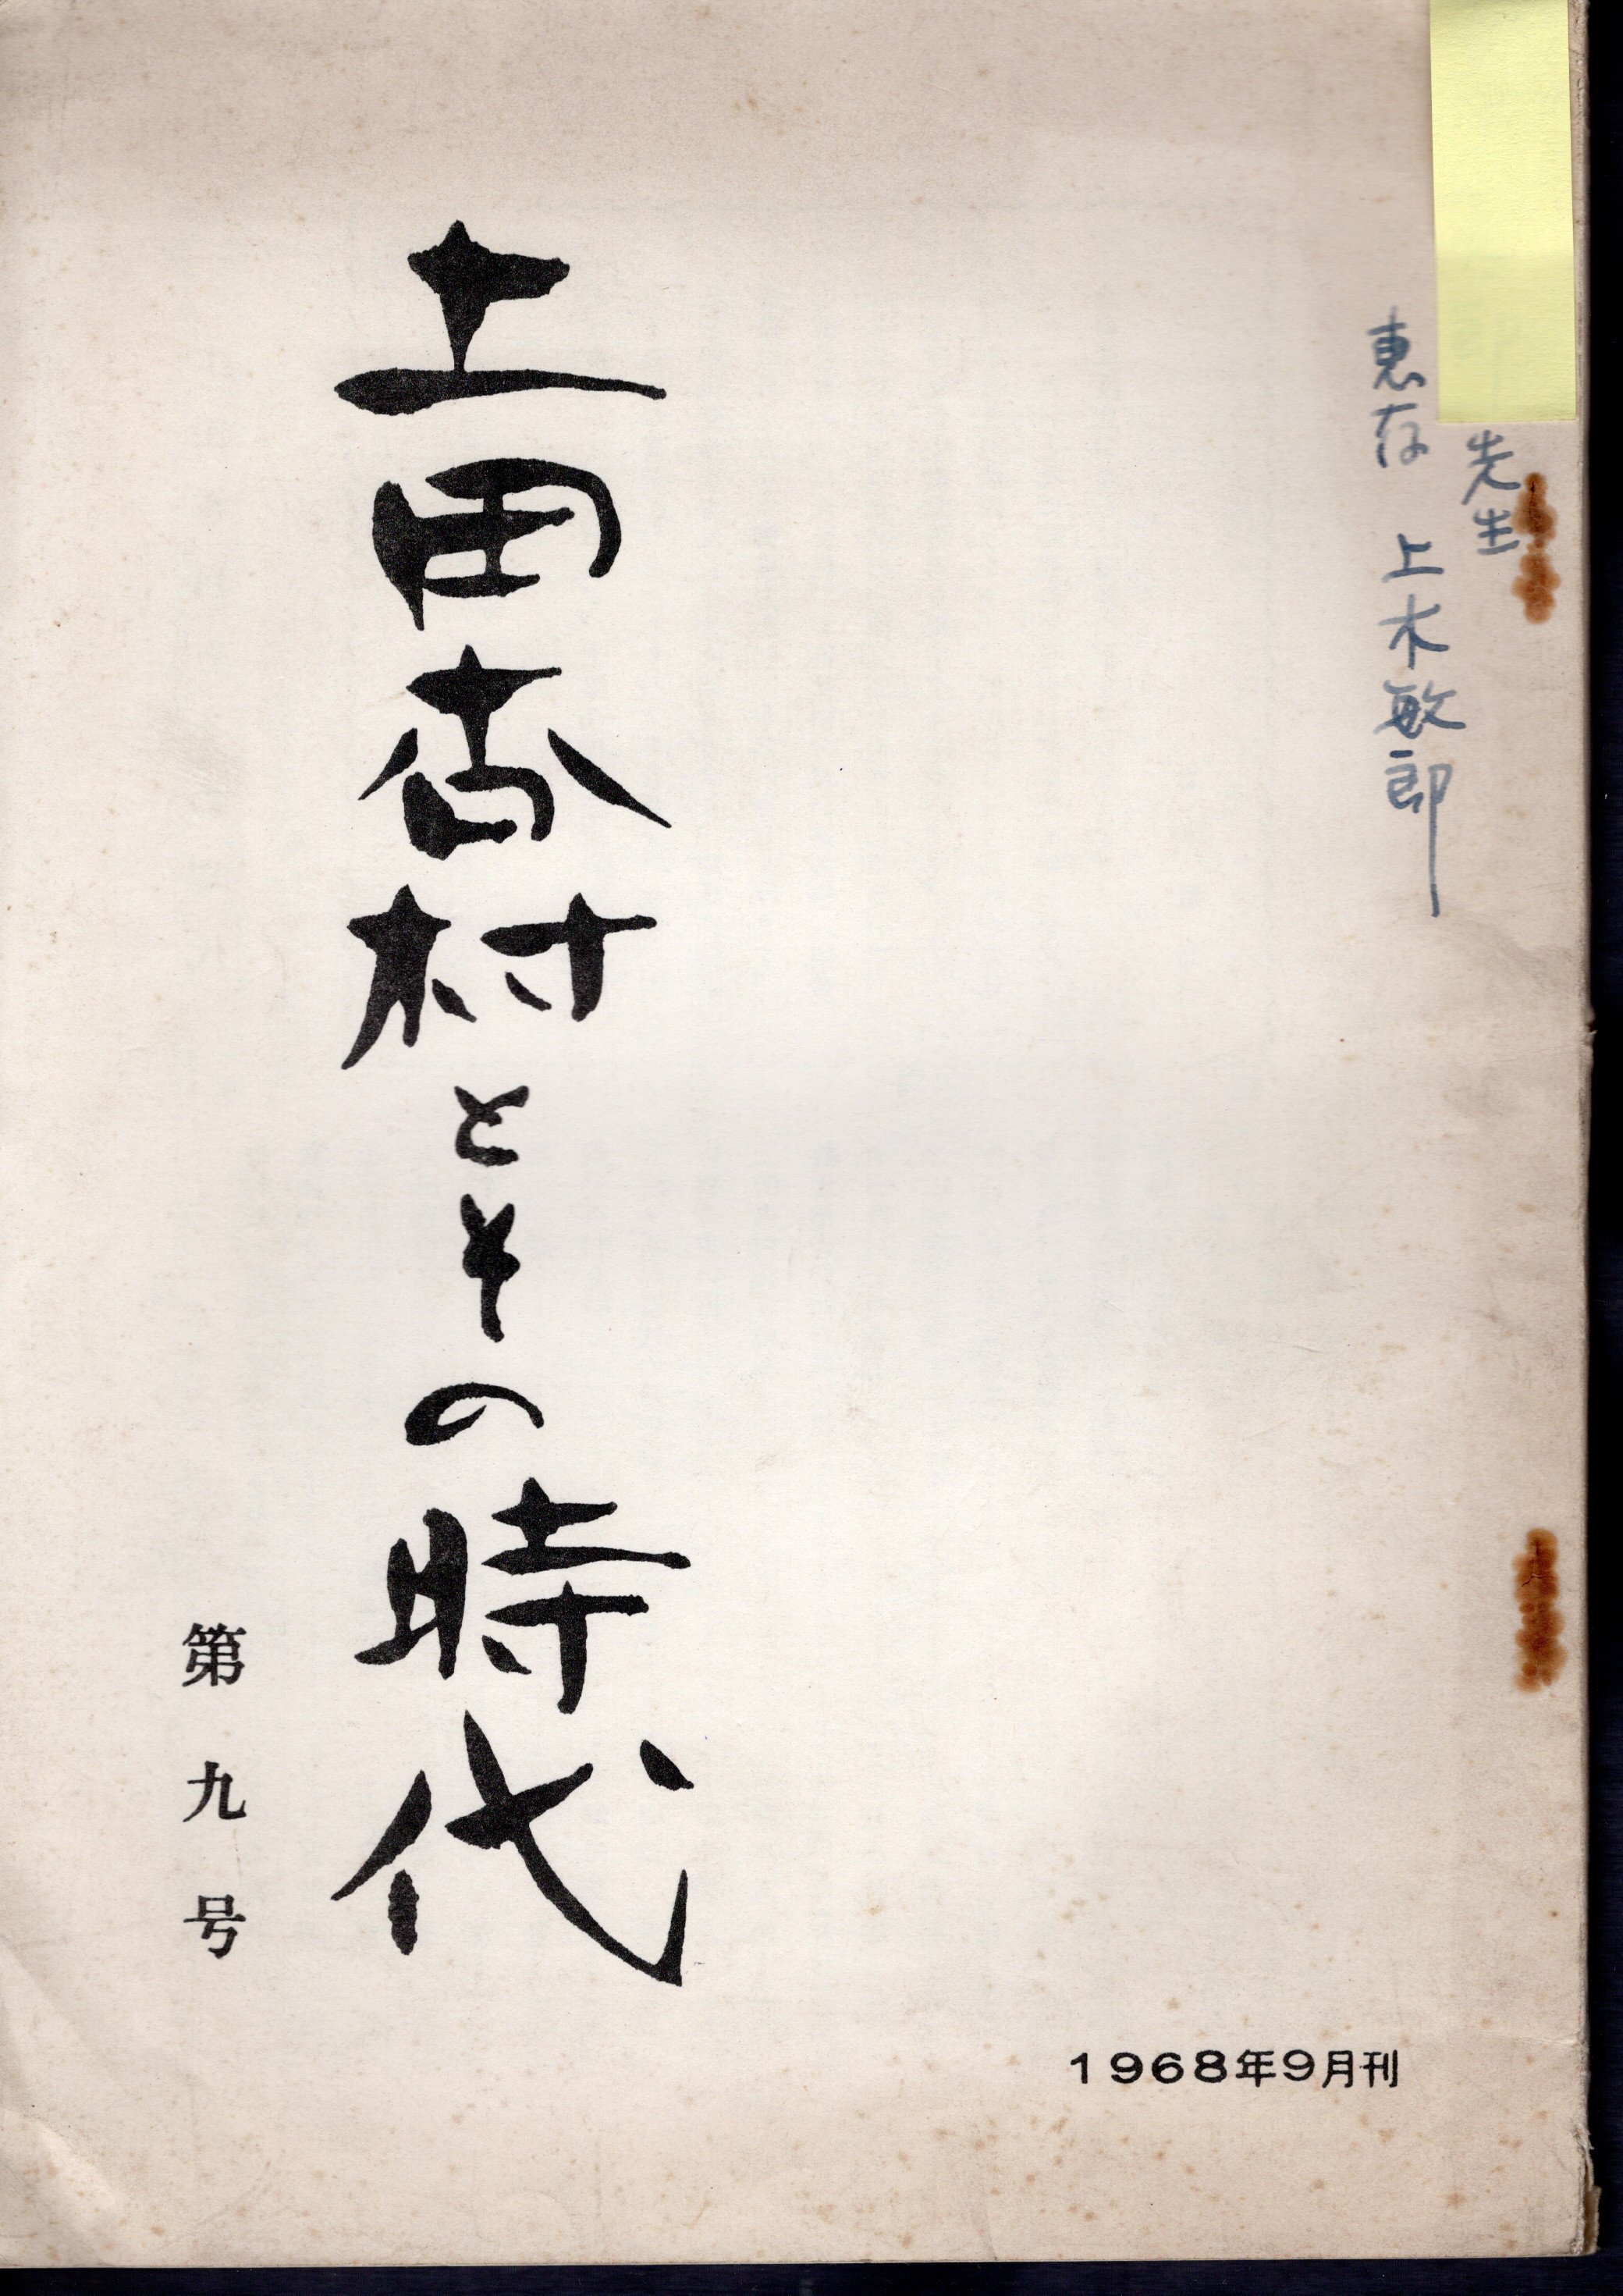 先生
恵存 上木敏郎
土田杏村とその時代
第九号
1968年9月刊